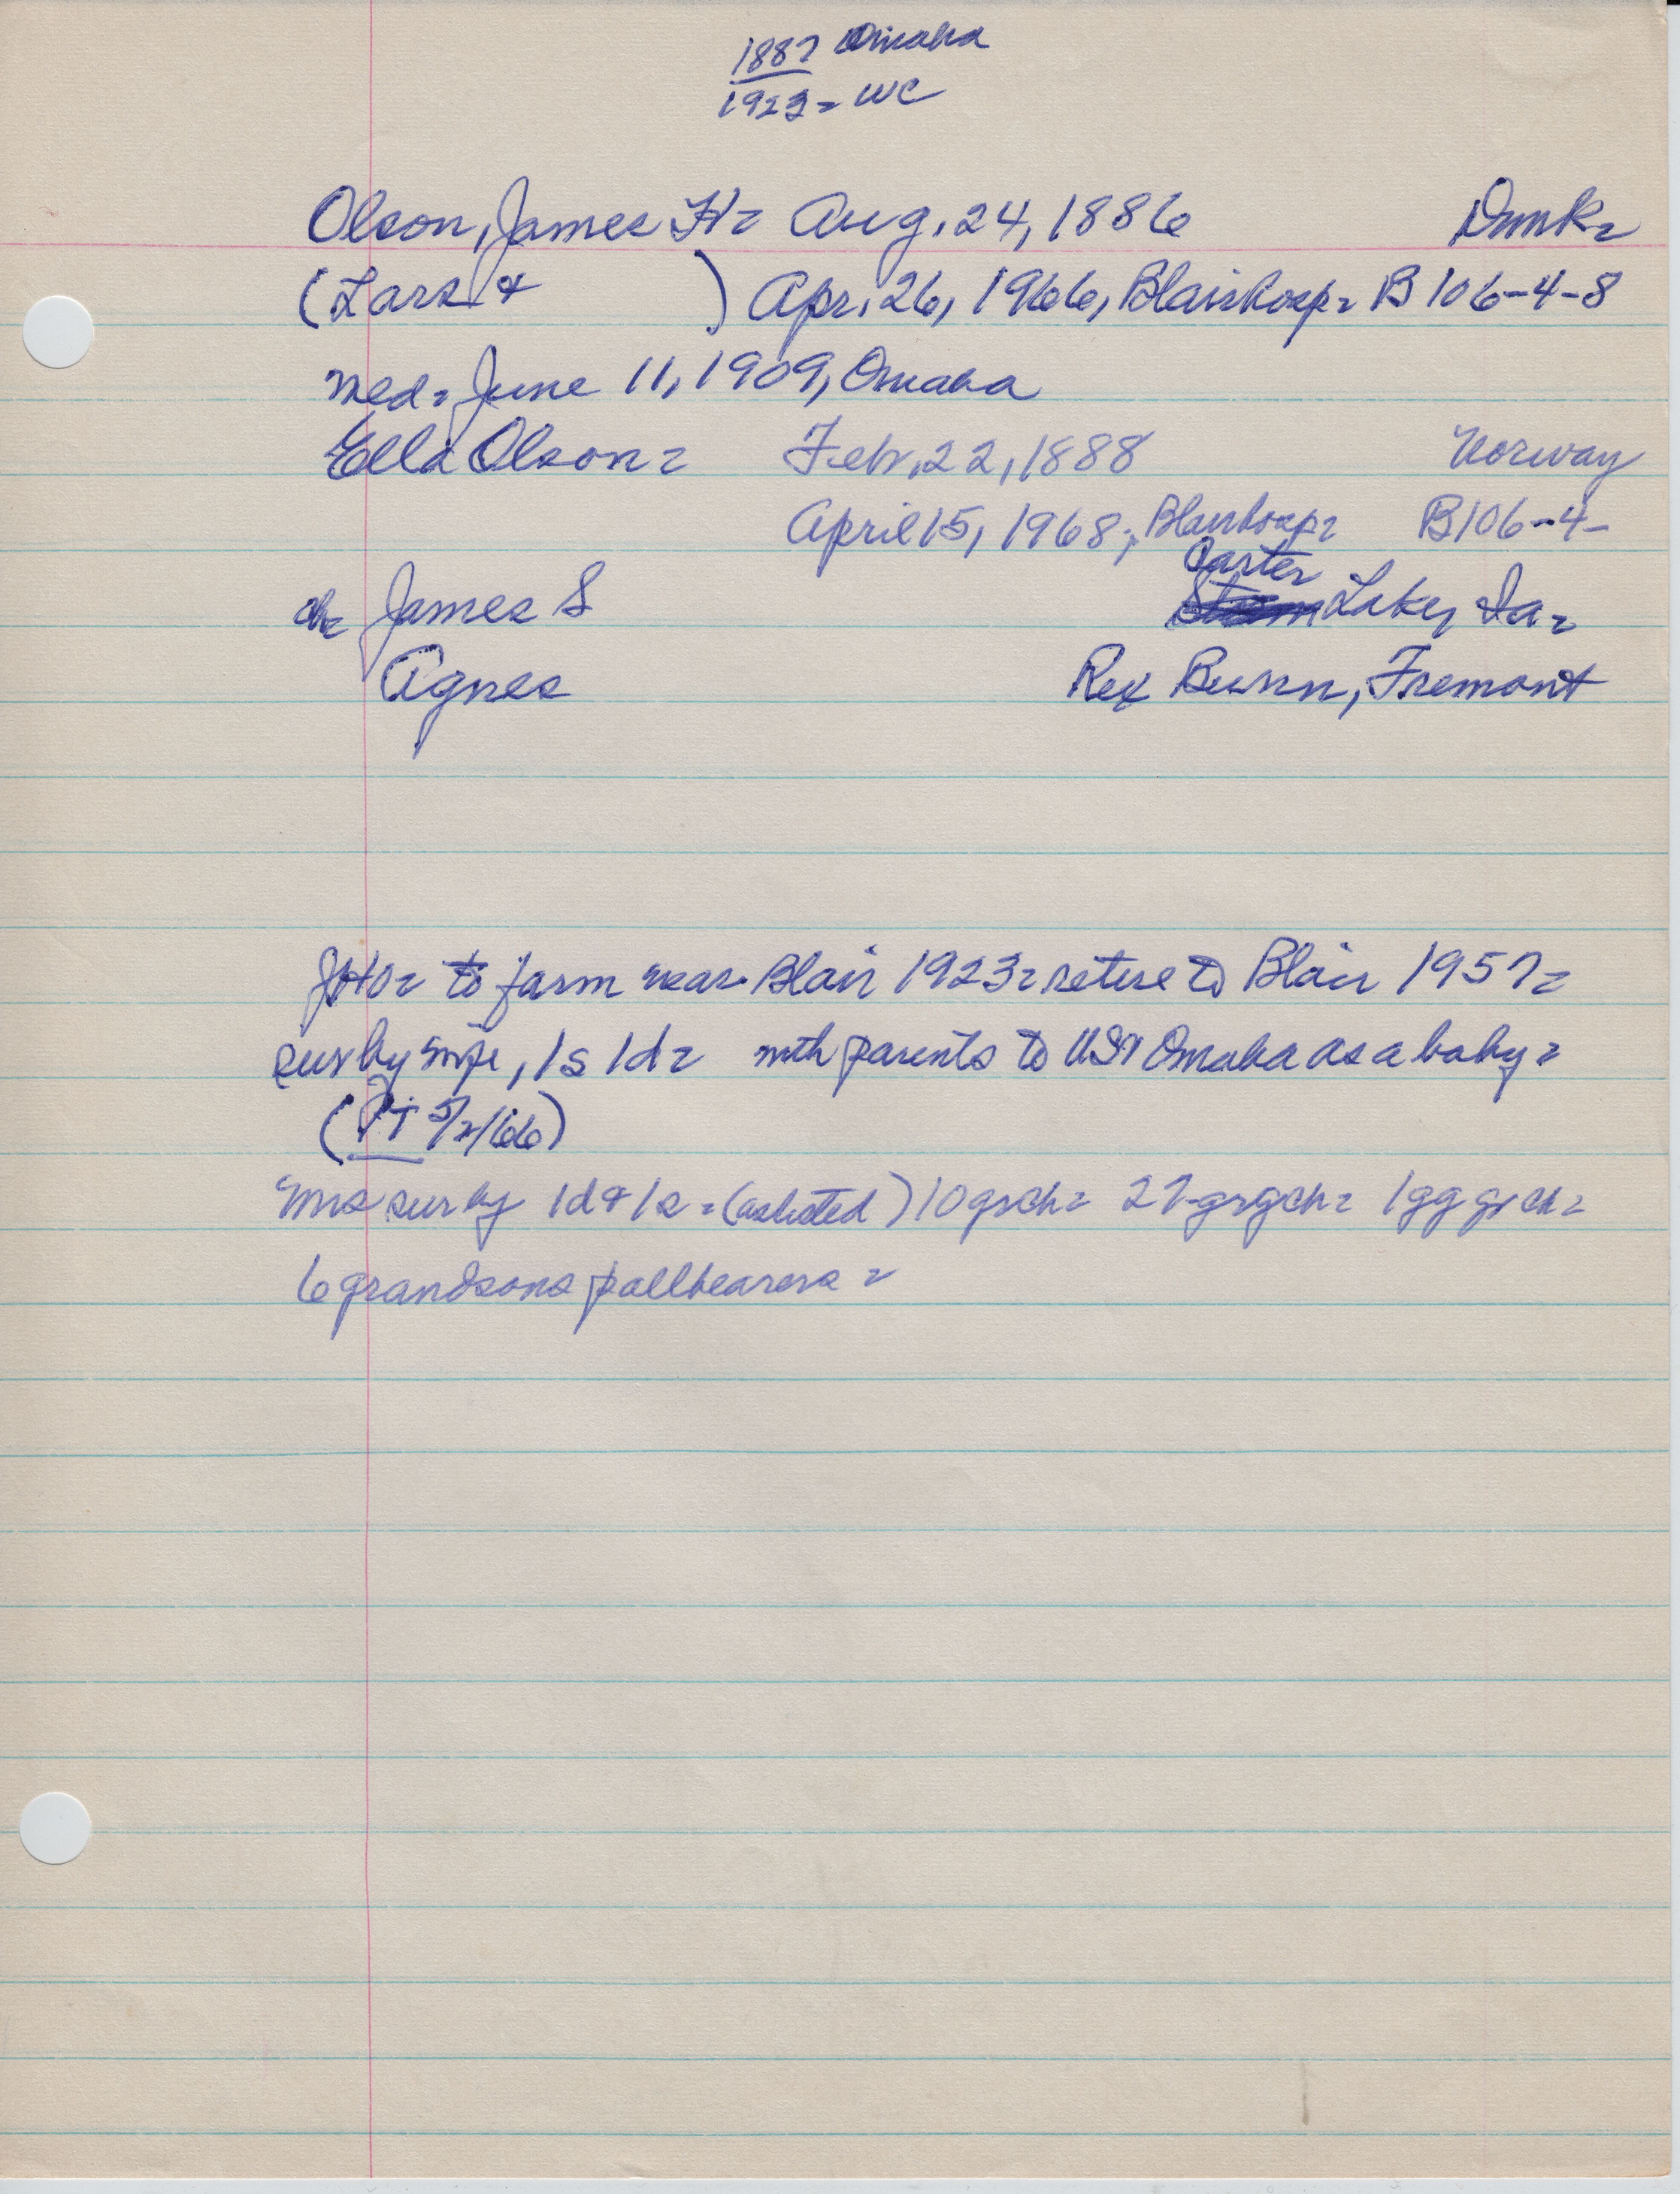 1887 Omaha
1923 = WC
Olson, James H= Aug. 24, 1886 Dnmk=
(Lars & ) Apr. 26, 1966, Blair hosp= B 106-4-8
Med= June 11, 1909, Omaha
Ella Olson= Feb. 22, 1888 Norway
April 15, 1968, Blair hosp= B106-4-
Carter
ch= James S Lake, Ia=
Agnes Rex Bunn, Fremont
JHO= to farm near Blair 1923= retire to Blair 1957=
sur by wife, 1s 1d= with parents to US & Omaha as a baby=
(PT 5/2/66)
Mrs sur by 1d & 1s = (as listed) 10 grch= 27 grgch= 1 gg gr ch=
6 grandsons pallbearers=